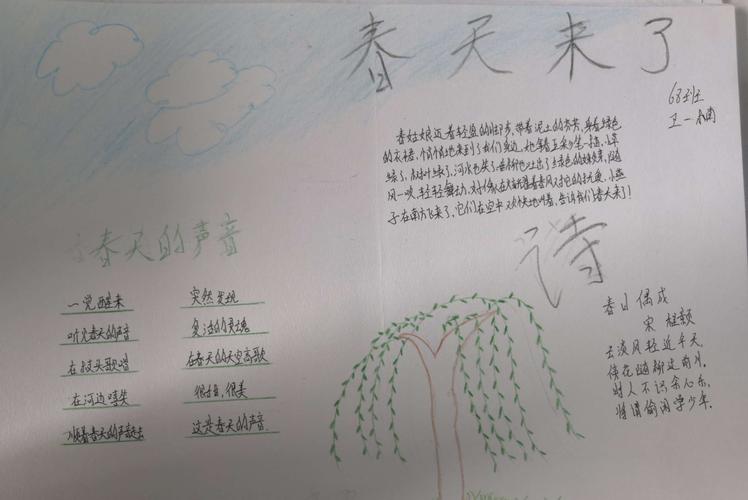 春天来了
68班
卫一楠
春姑娘迈着轻盈的脚步,带着泥土的芬芳,身着绿色
的衣裙,悄悄地来到了我们身边,她拿着五彩笔一描,小草
绿了,树叶绿了,河水也笑了,垂柳也
风一吹,轻轻舞动,好像在着春风对它的抚爱,小燕
子在南方飞来了,它们在空中欢快地叫着,告诉我们春天来了!
春天的声音
一觉醒来
突然发现
听见春天的声音
复活的灵魂
在枝头歌唱
在春天的天空高歌
在河边嘻笑
很轻,很美
顺着春天的声音走去
这是春天的声音.
诗
春日偶成
宋 程颢
云淡风轻近午天,
傍花随柳过前川,
时人不识余心乐,
将谓偷闲学少年.